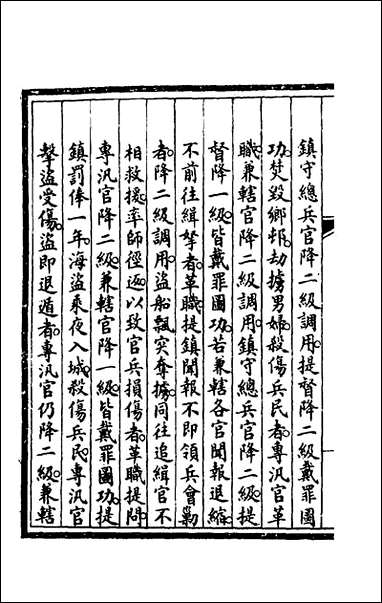 鎮守總兵官降二級調用提督降二級戴罪圖
功焚毀鄉邨劫擄男婦殺傷兵民者專汛官革
職兼轄官降二級調用鎮守總兵官降二級提
督降一級皆戴罪圖功若兼轄各官聞報退縮
不前往緝拏者革職提鎮聞報不即領兵會勦
者降二級調用盜船飄突奪擄同往追緝官不
相救援率師徑返以致官兵損傷者革職提問
專汛官降二級兼轄官降一級皆戴罪圖功提
鎮罰俸一年海盜乘夜入城殺傷兵民專汛官
擊盜受傷盜即退遁者專汛官仍降二級兼轄